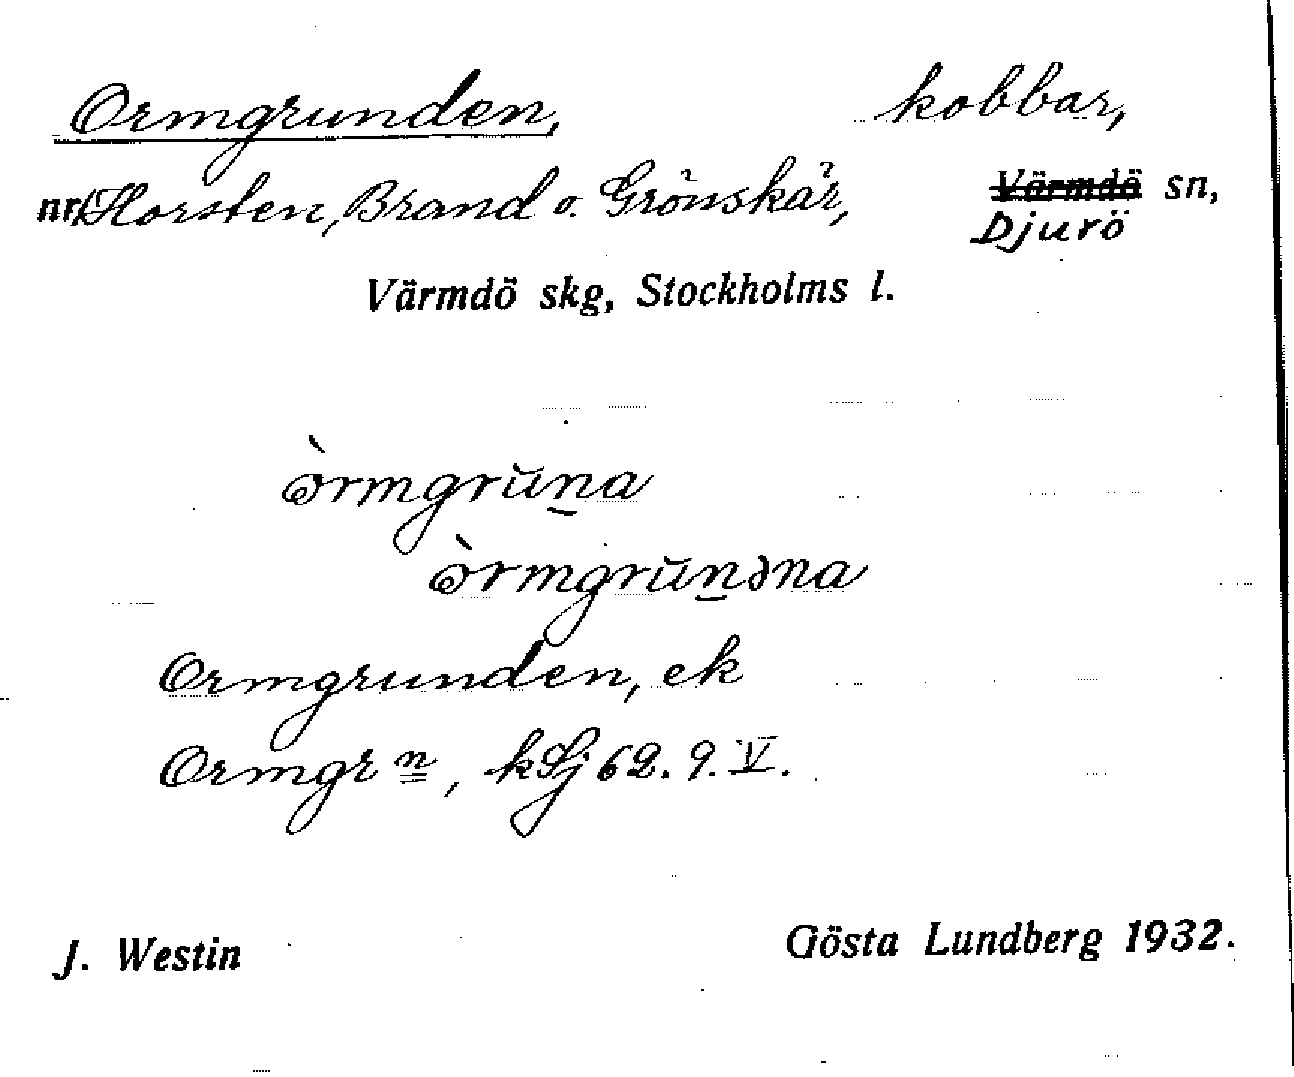 Ormgrunden, kobbar,
nr Horsten, Brand o. Grönskär, Värmdö sn,
Djurö
Värmdö skg, Stockholms l.
òrmgrŭṉa
òrmgrŭṉəna
Ormgrunden, ek
Ormgr n, kSj 62. 9. V.
J. Westin Gösta Lundberg 1932.